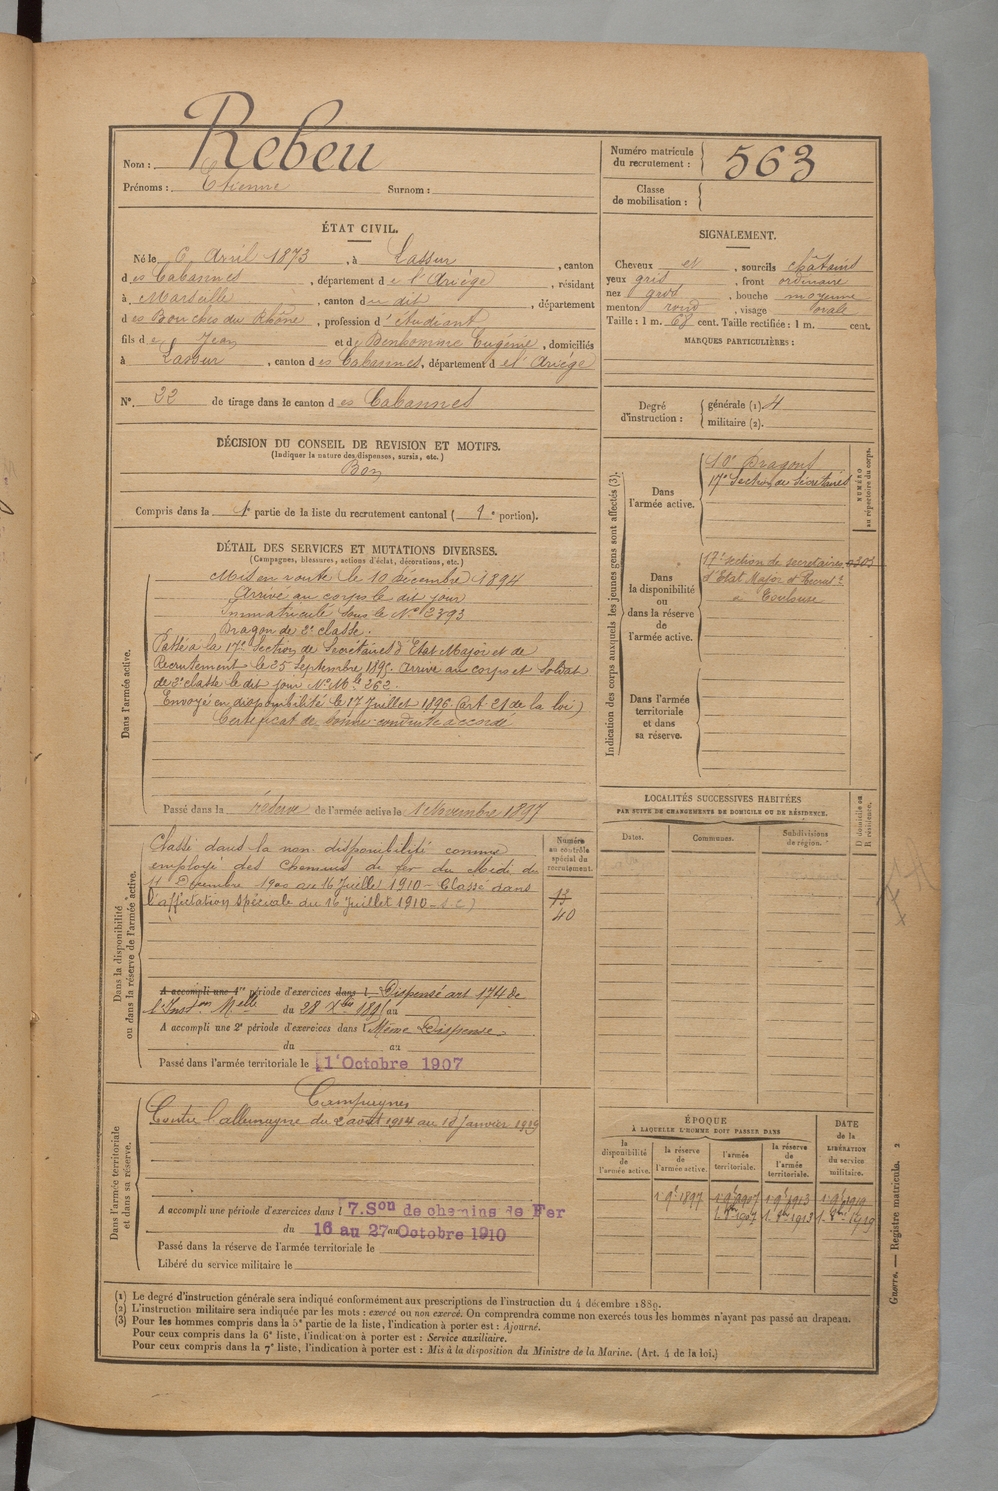 Nom : Rebeu
Prénoms : Etienne Surnom :
Numéro matricule du recrutement : 563
Classe de mobilisation :
ÉTAT CIVIL.
Né le 6 Avril 1873, à Lassur, canton
des Cabannes, département de l'Ariège, résidant
à Marseille, canton du dit, département
des Bouches du Rhône, profession d'étudiant
fils de Jean et de Bonhomme Eugénie, domiciliés
à Lassur, canton des Cabannes, département de l'Ariège
N°. 22 de tirage dans le canton des Cabannes
SIGNALEMENT.
Cheveux et, sourcils châtains
yeux gris, front ordinaire
nez gros, bouche moyenne
menton rond, visage ovale
Taille : 1 m. 68 cent. Taille rectifiée : 1 m. cent.
MARQUES PARTICULIÈRES :
Degré d'instruction : générale (1). 4
militaire (2).
DÉCISION DU CONSEIL DE REVISION ET MOTIFS.
(Indiquer la nature des dispenses, sursis, etc.)
Bon
Compris dans la 1e partie de la liste du recrutement cantonal (1e portion).
DÉTAIL DES SERVICES ET MUTATIONS DIVERSES.
(Campagnes, blessures, actions d'éclat, décorations, etc.)
Dans l'armée active.
Mis en route le 10 décembre 1894
Arrivé au corps le dit jour
Immatriculé sous le N° 2393
Dragon de 2e classe.
Passé à la 17e Section de Secrétaires d'Etat Major et de
Recrutement le 25 Septembre 1895. Arrivé au corps et Soldat
de 2e classe le dit jour N° Mle 262.
Envoyé en disponibilité le 17 Juillet 1896 (art. 21 de la loi)
Certificat de bonne conduite accordé
Passé dans la réserve de l'armée active le 1 Novembre 1897
Indication des corps auxquels les jeunes gens sont affectés (3).
NUMÉRO au répertoire du corps.
Dans l'armée active.
10e Dragons
17e Section de Secrétaires
Dans la disponibilité ou dans la réserve de l'armée active.
17e section de secrétaires
d'Etat Major et Recrutt
à Toulouse
Dans l'armée territoriale et dans sa réserve.
LOCALITÉS SUCCESSIVES HABITÉES
PAR SUITE DE CHANGEMENTS DE DOMICILE OU DE RÉSIDENCE.
Dates. Communes. Subdivisions de région.
D. domicile ou R. résidence.
Dans la disponibilité ou dans la réserve de l'armée active.
Numéro au contrôle spécial du recrutement.
Classé dans la non disponibilité comme
employé des Chemins de fer du Midi du
11 Décembre 1900 au 16 Juillet 1910 - Classé dans
l'affectation spéciale du 16 Juillet 1910 - S.C.)
12
40
A accompli une 1re période d'exercices dans l Dispensé art 174 de
l'Inston Melle du 28 Xbre 1895 au
A accompli une 2e période d'exercices dans l Même Dispense
du au
Passé dans l'armée territoriale le 1er Octobre 1907
Dans l'armée territoriale et dans sa réserve.
Campagnes
Contre l'allemagne du 2 août 1914 au 10 janvier 1919
A accompli une période d'exercices dans l 7. Son de chemins de Fer
du 16 au 27 au Octobre 1910
Passé dans la réserve de l'armée territoriale le
Libéré du service militaire le
ÉPOQUE
À LAQUELLE L'HOMME DOIT PASSER DANS
la disponibilité de l'armée active. la réserve de l'armée active. l'armée territoriale. la réserve de l'armée territoriale.
DATE de la LIBÉRATION du service militaire.
1 9e 1897 1 9e 1907 1 9e 1913 1 9e 1919
1. 8bre 1907 1. 8bre 1913 1. 8bre 1919
(1) Le degré d'instruction générale sera indiqué conformément aux prescriptions de l'instruction du 4 décembre 1889.
(2) L'instruction militaire sera indiquée par les mots : exercé ou non exercé. On comprendra comme non exercés tous les hommes n'ayant pas passé au drapeau.
(3) Pour les hommes compris dans la 5e partie de la liste, l'indication à porter est : Ajourné.
Pour ceux compris dans la 6e liste, l'indication à porter est : Service auxiliaire.
Pour ceux compris dans la 7e liste, l'indication à porter est : Mis à la disposition du Ministre de la Marine. (Art. 4 de la loi.)
Guerre. — Registre matricule. 2